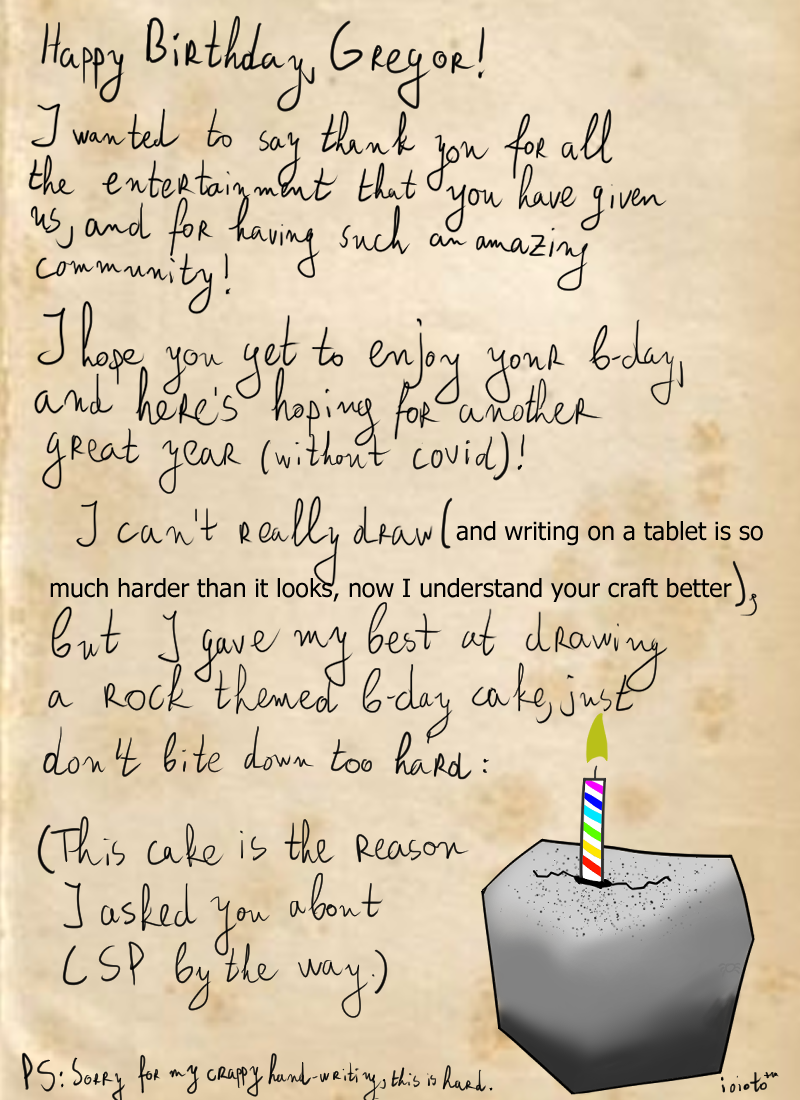 Happy Birthday, Gregor!
I wanted to say thank you for all
the entertainment that you have given
us, and for having such an amazing
community!
I hope you get to enjoy your b-day,
and here's hoping for another
great year (without covid)!
I can't really draw (and writing on a tablet is so
much harder than it looks, now I understand your craft better),
but I gave my best at drawing
a rock themed b-day cake, just
don't bite down too hard:
(This cake is the reason
I asked you about
CSP by the way.)
PS: Sorry for my crappy hand-writing, this is hard.
ioioto™